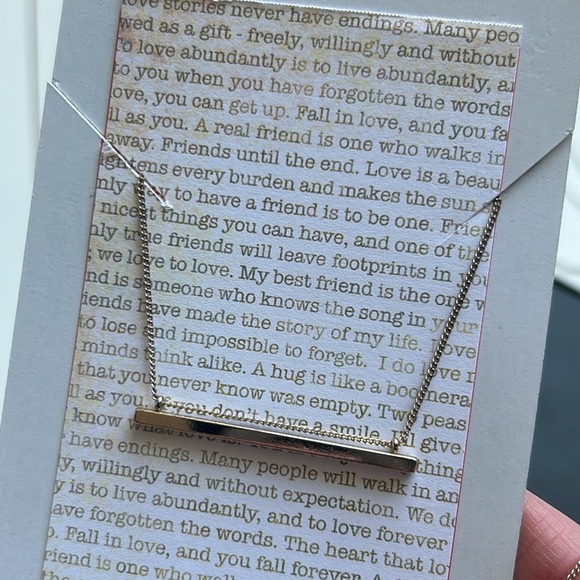 love stories never have endings. Many peo
wed as a gift - freely, willingly and without
o love abundantly is to live abundantly, a
to you when you have forgotten the words
ove, you can get up. Fall in love, and you fa
ll as you. A real friend is one who walks in
way. Friends until the end. Love is a beau
ens every burden and makes the sun
nly way to have a friend is to be one. Frien
nicest things you can have, and one of the
nly true friends will leave footprints in you
; we love to love. My best friend is the one w
nd is someone who knows the song in your
iends have made the story of my life. Love
to lose and impossible to forget. I do love
minds think alike. A hug is like a boomera
that you never know was empty. Two peas
ll as you. If you don't have a smile, I'll give
know what love is thing
have endings. Many people will walk in an
y, willingly and without expectation. We do
y is to live abundantly, and to love forever
ave forgotten the words. The heart that lo
. Fall in love, and you fall forever. A
riend is one who walk